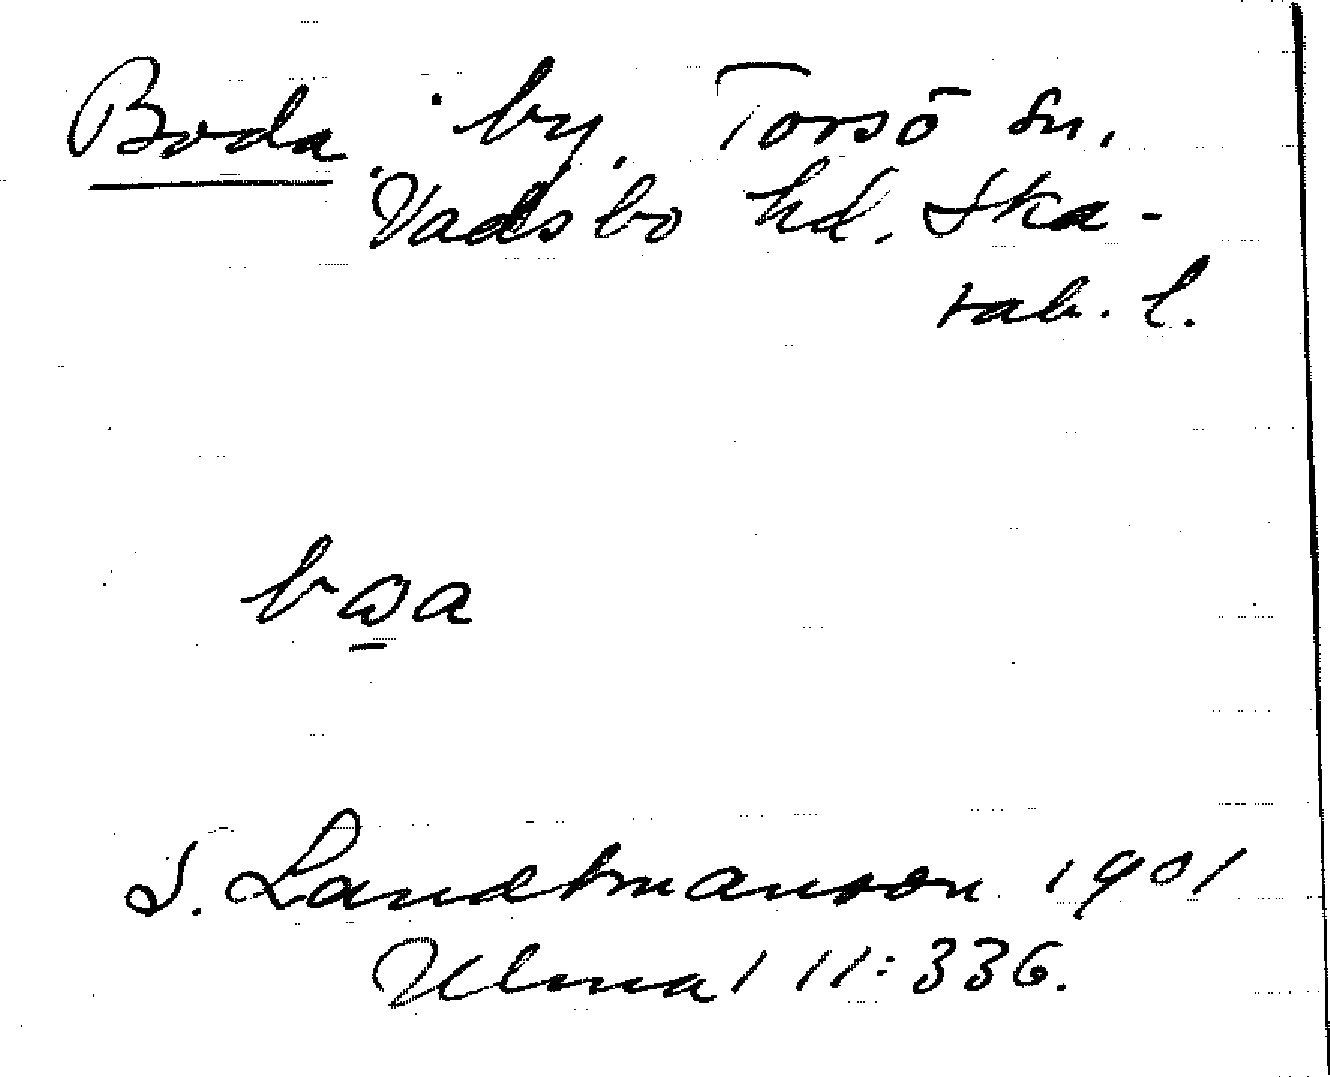 Boda, by, Torsö sn,
Vadsbo hd. Ska-
rab. l.
bωa
S. Landtmanson 1901
Ulma 111:336.